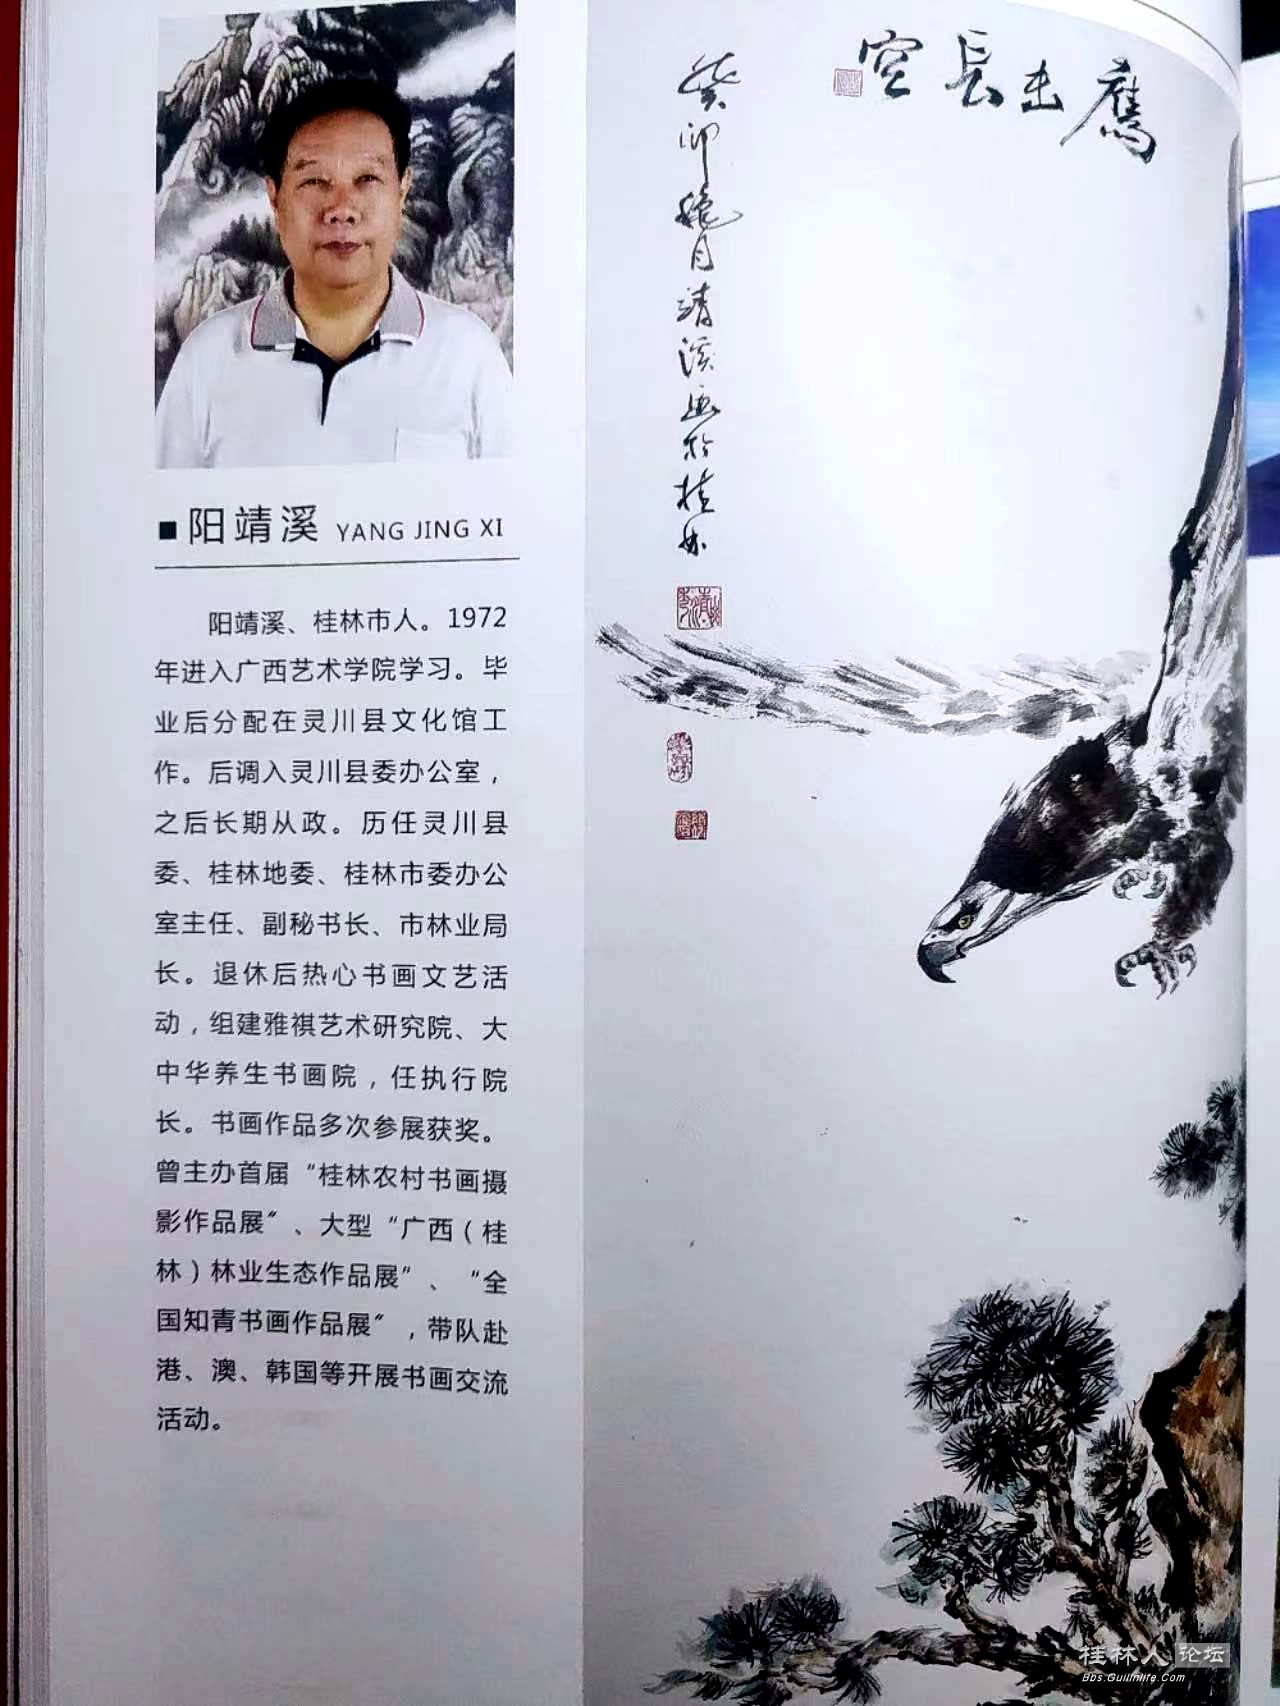 阳靖溪 YANG JING XI
阳靖溪、桂林市人。1972
年进入广西艺术学院学习。毕
业后分配在灵川县文化馆工
作。后调入灵川县委办公室，
之后长期从政。历任灵川县
委、桂林地委、桂林市委办公
室主任、副秘书长、市林业局
长。退休后热心书画文艺活
动，组建雅祺艺术研究院、大
中华养生书画院，任执行院
长。书画作品多次参展获奖。
曾主办首届“桂林农村书画摄
影作品展”、大型“广西（桂
林）林业生态作品展”、“全
国知青书画作品展”，带队赴
港、澳、韩国等开展书画交流
活动。
鹰击長空
癸卯
月靖溪画於桂林
桂林人论坛
Bbs.Guilinlife.Com